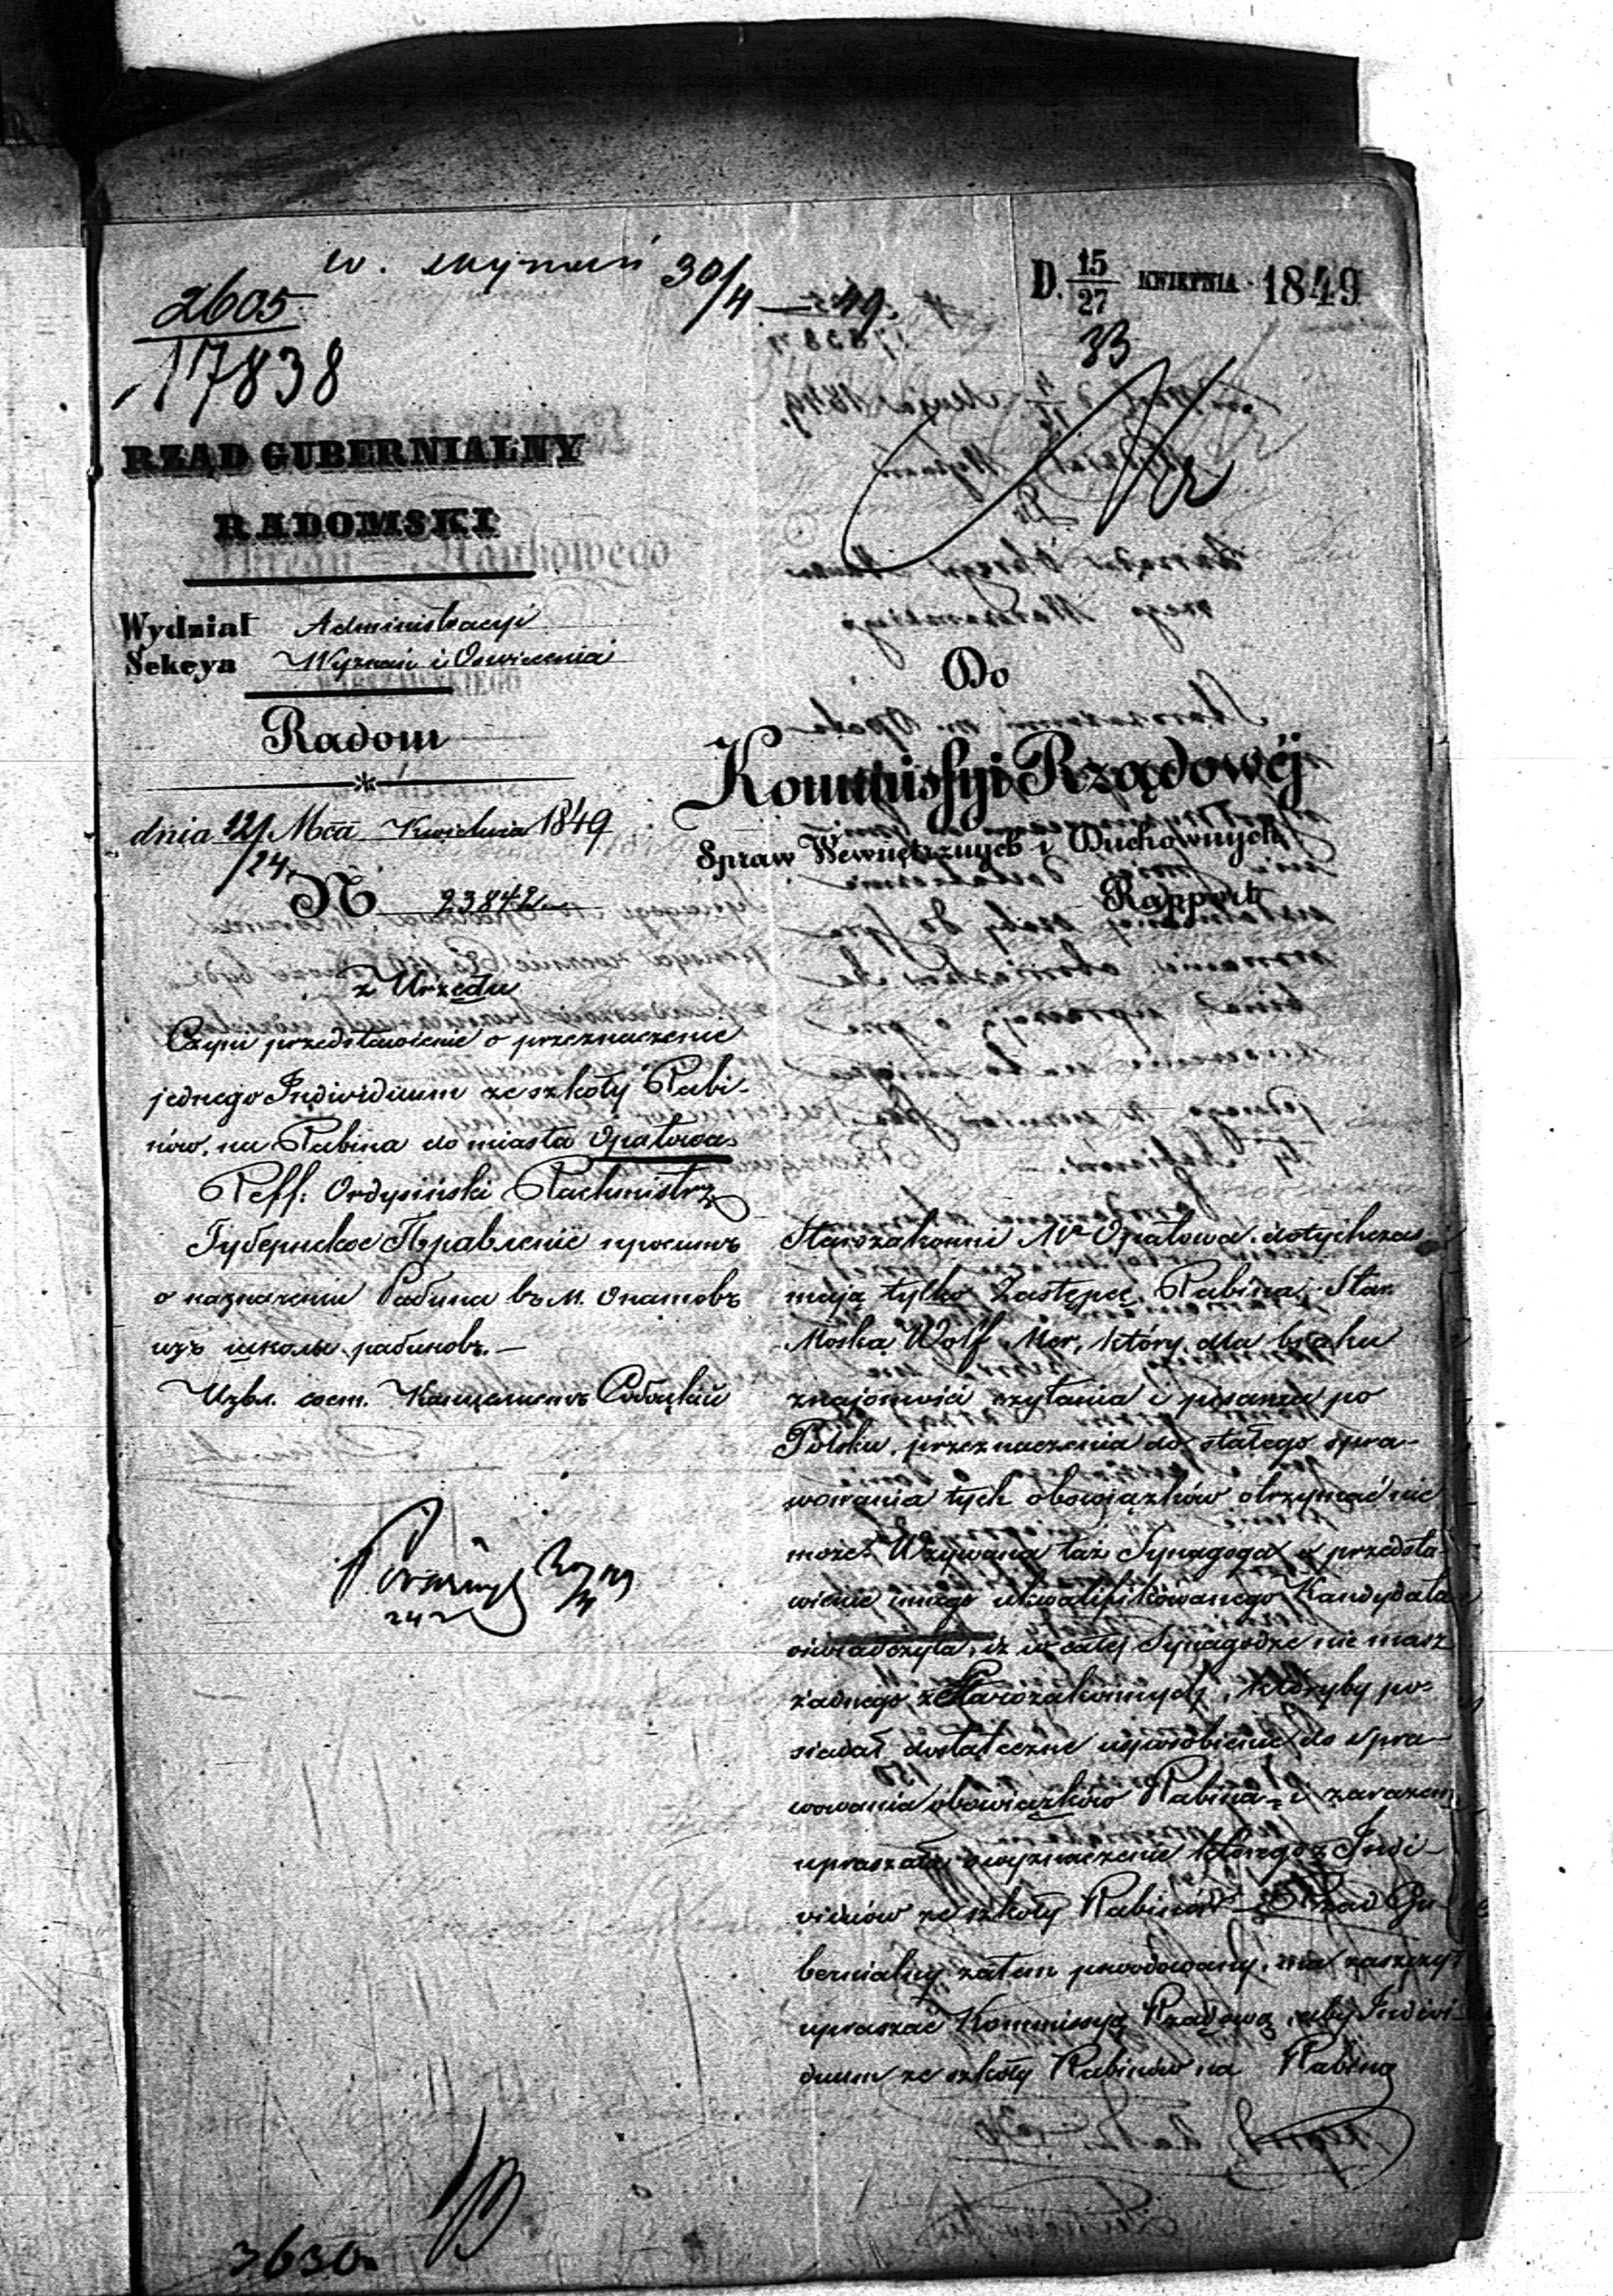 W. Wyznań 30/4 — 49.
D. 15/27 KWIETNIA 1849
2605
17838
33
RZĄD GUBERNIALNY
RADOMSKI
Wydział Administracyi
Sekcya Wyznań i Oświecenia
Radom
dnia 12/24 Mca Kwietnia 1849
N 23842
Do
Kommissyi Rządowéj
Spraw Wewnętrznych i Duchownych
Rapport
z Urzędu
Czyni przedstawienie o przeznaczenie
jednego Individuum ze szkoły Rabi-
nów, na Rabina do miasta Opatowa
Reff: Ordysiński Rachmistrz
Губернское Правленіе проситъ
о назначеніи Рабина въ М. Опатовъ
изъ школы рабиновъ. —
Изъ. сост. Канцелистъ
Starozakonni Mta Opatowa dotychczas
mają tylko Zastępcę Rabina, Star.
Moska Wolf Mer, który dla braku
znajomości czytania i pisania po
Polsku, przeznaczenia do stałego spra-
wowania tych obowiązków otrzymać nie
może. Wzywana taż Synagoga o przedsta-
wienie innego ukwalifikowanego Kandydata
oświadczyła, iż w całej Synagodze nie masz
żadnego z Starozakonnych, któryby po-
siadał dostateczne usposobienie do spra-
wowania obowiązków Rabina, i zarazem
upraszała o wyznaczenie którego z Indi-
viduów ze szkoły Rabinów — Rząd Gu-
bernialny zatem powodowany, ma zaszczyt
upraszać Kommissyą Rządową, aby Indivi-
duum ze szkoły Rabinów na Rabina
3630